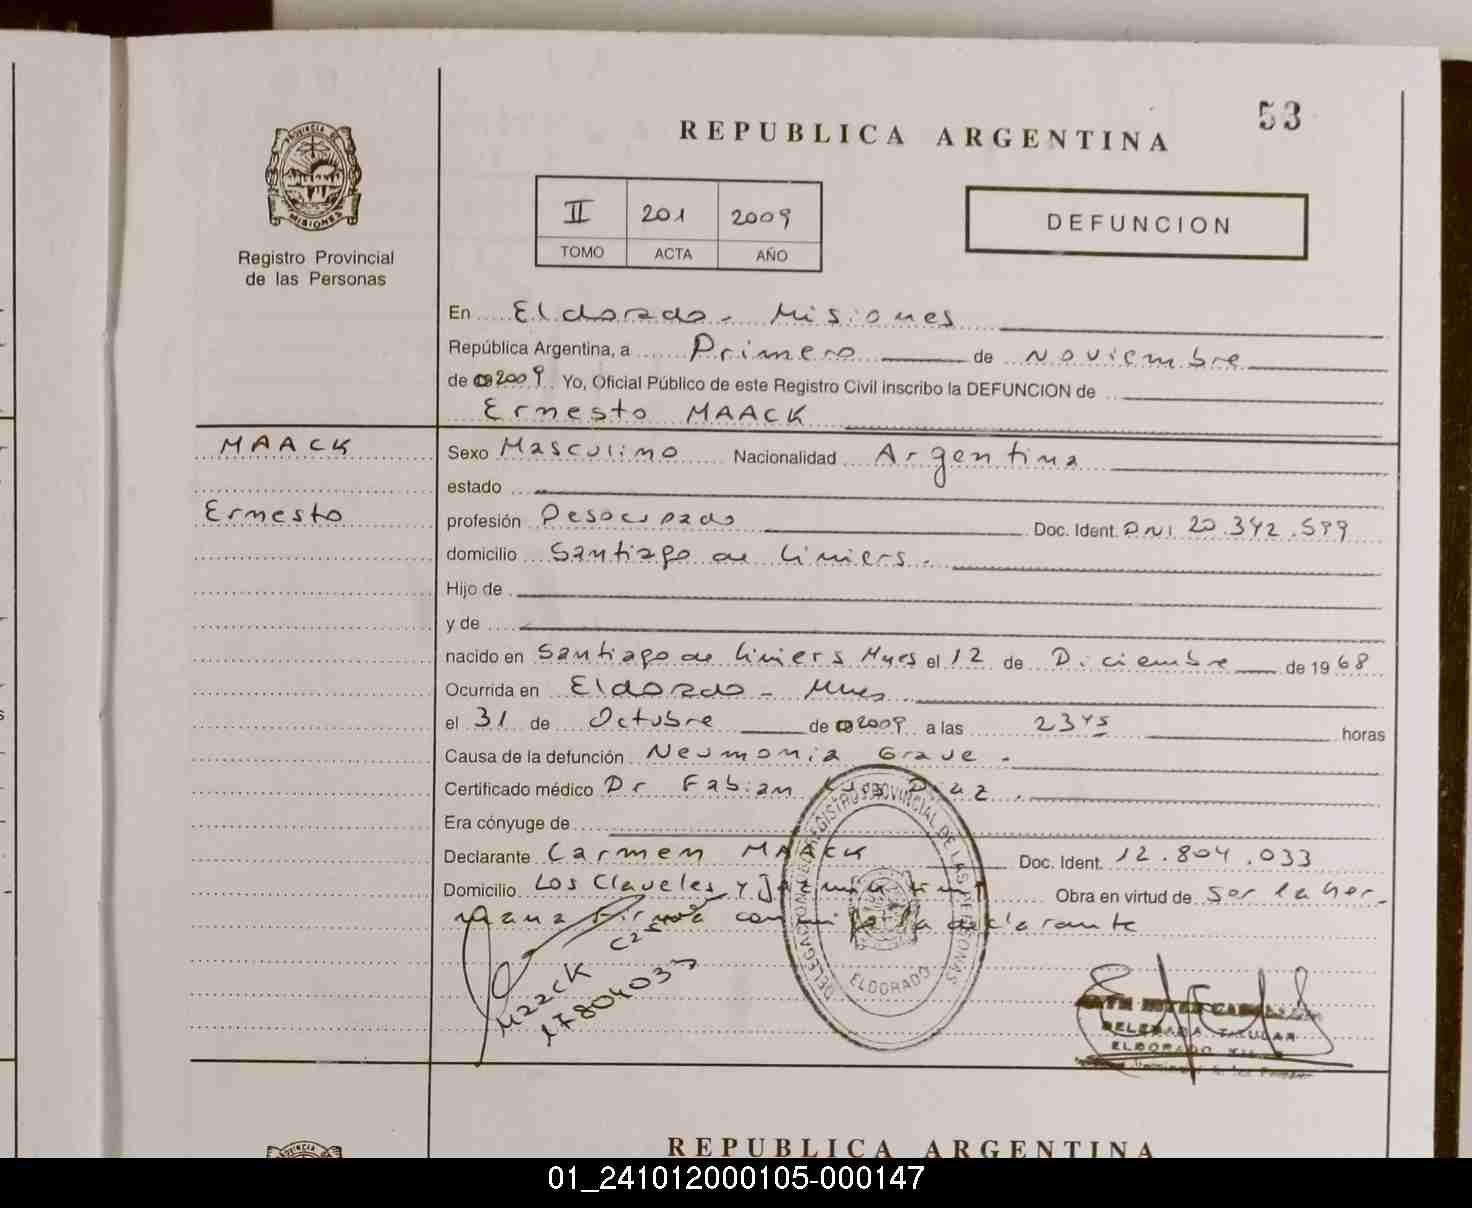 53
REPUBLICA ARGENTINA
PROVINCIA DE
MISIONES
Registro Provincial
de las Personas
II 201 2009
TOMO ACTA AÑO
DEFUNCION
En Eldorado - Misiones
República Argentina, a Primero de Noviembre
de 2009 Yo, Oficial Público de este Registro Civil inscribo la DEFUNCION de
Ernesto MAACK
MAACK
Ernesto
Sexo Masculino Nacionalidad Argentina
estado
profesión Desocupado Doc. Ident. DNI 20.342.599
domicilio Santiago de Liniers.
Hijo de
y de
nacido en Santiago de Liniers Mnes el 12 de Diciembre de 1968
Ocurrida en Eldorado - Mnes
el 31 de Octubre de 2009 a las 23 45 horas
Causa de la defunción Neumonia Grave.
Certificado médico Dr Fabian Diaz.
Era cónyuge de
Declarante Carmen MAACK Doc. Ident. 12.804.033
Domicilio Los Claveles y Obra en virtud de Ser la her-
mana Firma con mi la declarante
DELEGACION DEL REGISTRO PROVINCIAL DE LAS PERSONAS
ELDORADO
Maack
17804033
DELEGADA TITULAR
ELDORADO
REPUBLICA ARGENTINA
01_241012000105-000147